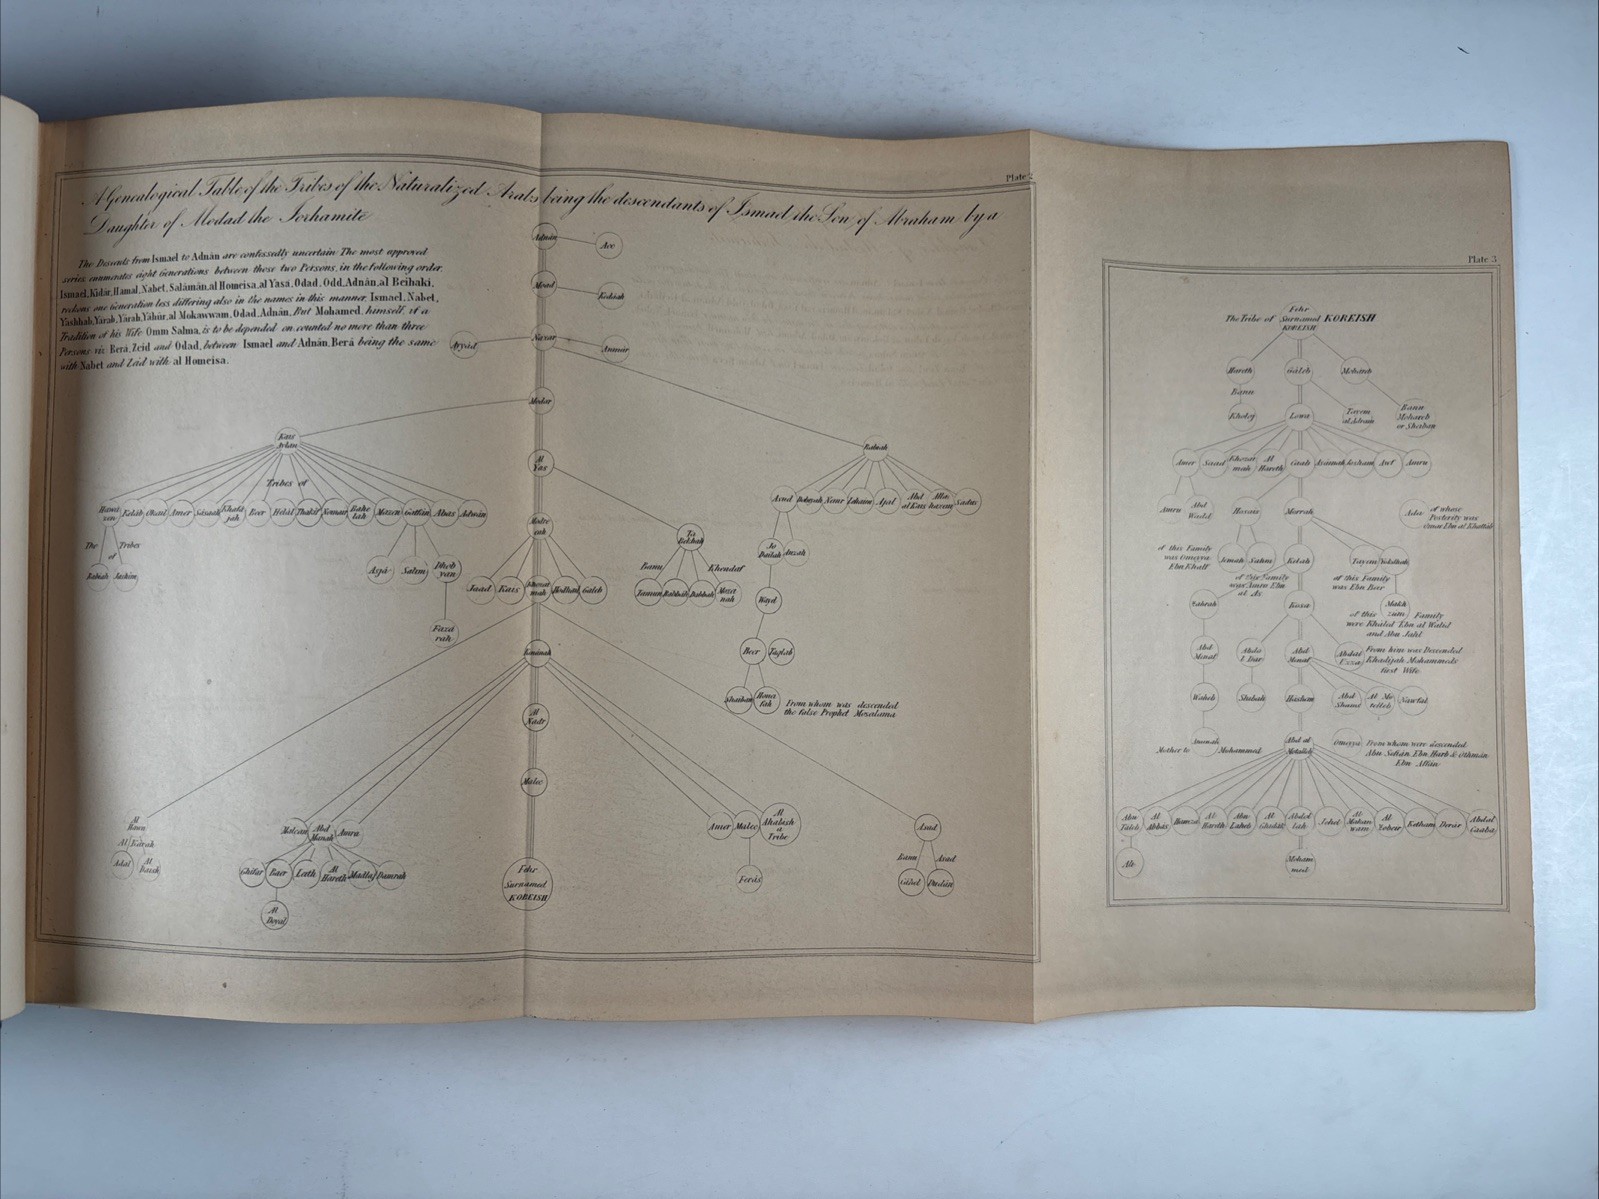 Plate 2
A Genealogical Table of the Tribes of the Naturalized Arabs being the descendants of Ismael the Son of Abraham by a
Daughter of Modad the Jorhamite
The Descents from Ismael to Adnân are confessedly uncertain The most approved
series enumerates eight Generations between those two Persons, in the following order.
Ismael, Kidâr, Hamal, Nabet, Salâmân, al Homeisa, al Yasá, Odad, Odd, Adnân, al Beihaki,
reckons one Generation less differing also in the names in this manner, Ismael, Nabet,
Yashhab, Yárab, Yárab, Yáhúr, al Mokawwam, Odad, Adnân, But Mohamed, himself, if a
Tradition of his Wife Omm Salma, is to be depended on counted no more than three
Persons viz Berá, Zeid and Odad, between Ismael and Adnân, Berá being the same
with Nabet and Zeid with al Homeisa.
Adnân
Acc
Moad
Kodáah
Nazar
Ayyád
Anmár
Modar
Kais
Rabiah
Al
Yas
Tribes of
Keláb Okail Amer Sásaah Beer Helâl Thakîf Nomair Mazen Gatfân Abas Adwân
The Tribes
of
Rabiah Jashim
Salim
Fazá
rah
Jaad Kais Hodhail Galeb
Banu Khendaf
Asad Lohaim Ajal Sadus
Anzah
Wayd
Becr Tagleb
Shaiban Hona
fah
From whom was descended
the false Prophet Mosalama
Kenanah
Al
Nadr
Malec
Fehr
Surnamed
KOREISH
Al
Hawn
Al Karah
Adal
Abd
Manah
Amru
Ghifar Bacr Leith Al
Hareth Damrah
Amer Malec Al
Ahabish
a
Tribe
Ferâs
Asad
Banu Asad
Dudân
Plate 3
Fehr
The Tribe of Surnamed KOREISH
KOREISH
Hareth Galeb Mohareb
Banu
Lowa
Banu
Mohareb
or Shaiban
Amer Saad Al
Hareth Caab Josham Awf Amru
Amru Abd
Wadd
Hosais Morrah Ada of whose
Posterity was
Omar Ebn al Khattâb
of this Family
was Omeyya
Ebn Khalf
Jomah Sahm Kelab Tayem Yokdhah
of this Family
was Amru Ebn
al As
of this Family
was Ebn Becr
Zahrah Kosa Makh
zum
of this Family
were Khâled Ebn al Walid
and Abu Jahl
Abd
Menaf Abda
l Dar Abd
Menaf Abdal
Uzza From him was Descended
Khadijah Mohammeds
first Wife
Waheb Shaibah Hashem Abd
Shams Al Mo
talleb Nawfal
Mother to Mohammed
Abd al
Motalleb
Omeyya From whom were descended
Abu Sofiân Ebn Harb & Othmân
Ebn Affân
Abu
Taleb Al
Abbâs Hamza Al
Hareth Abu
Laheb Abdal
lah Al
Mokaw
wam Kotham Derâr Abdal
Caaba
Ali
Moham
med